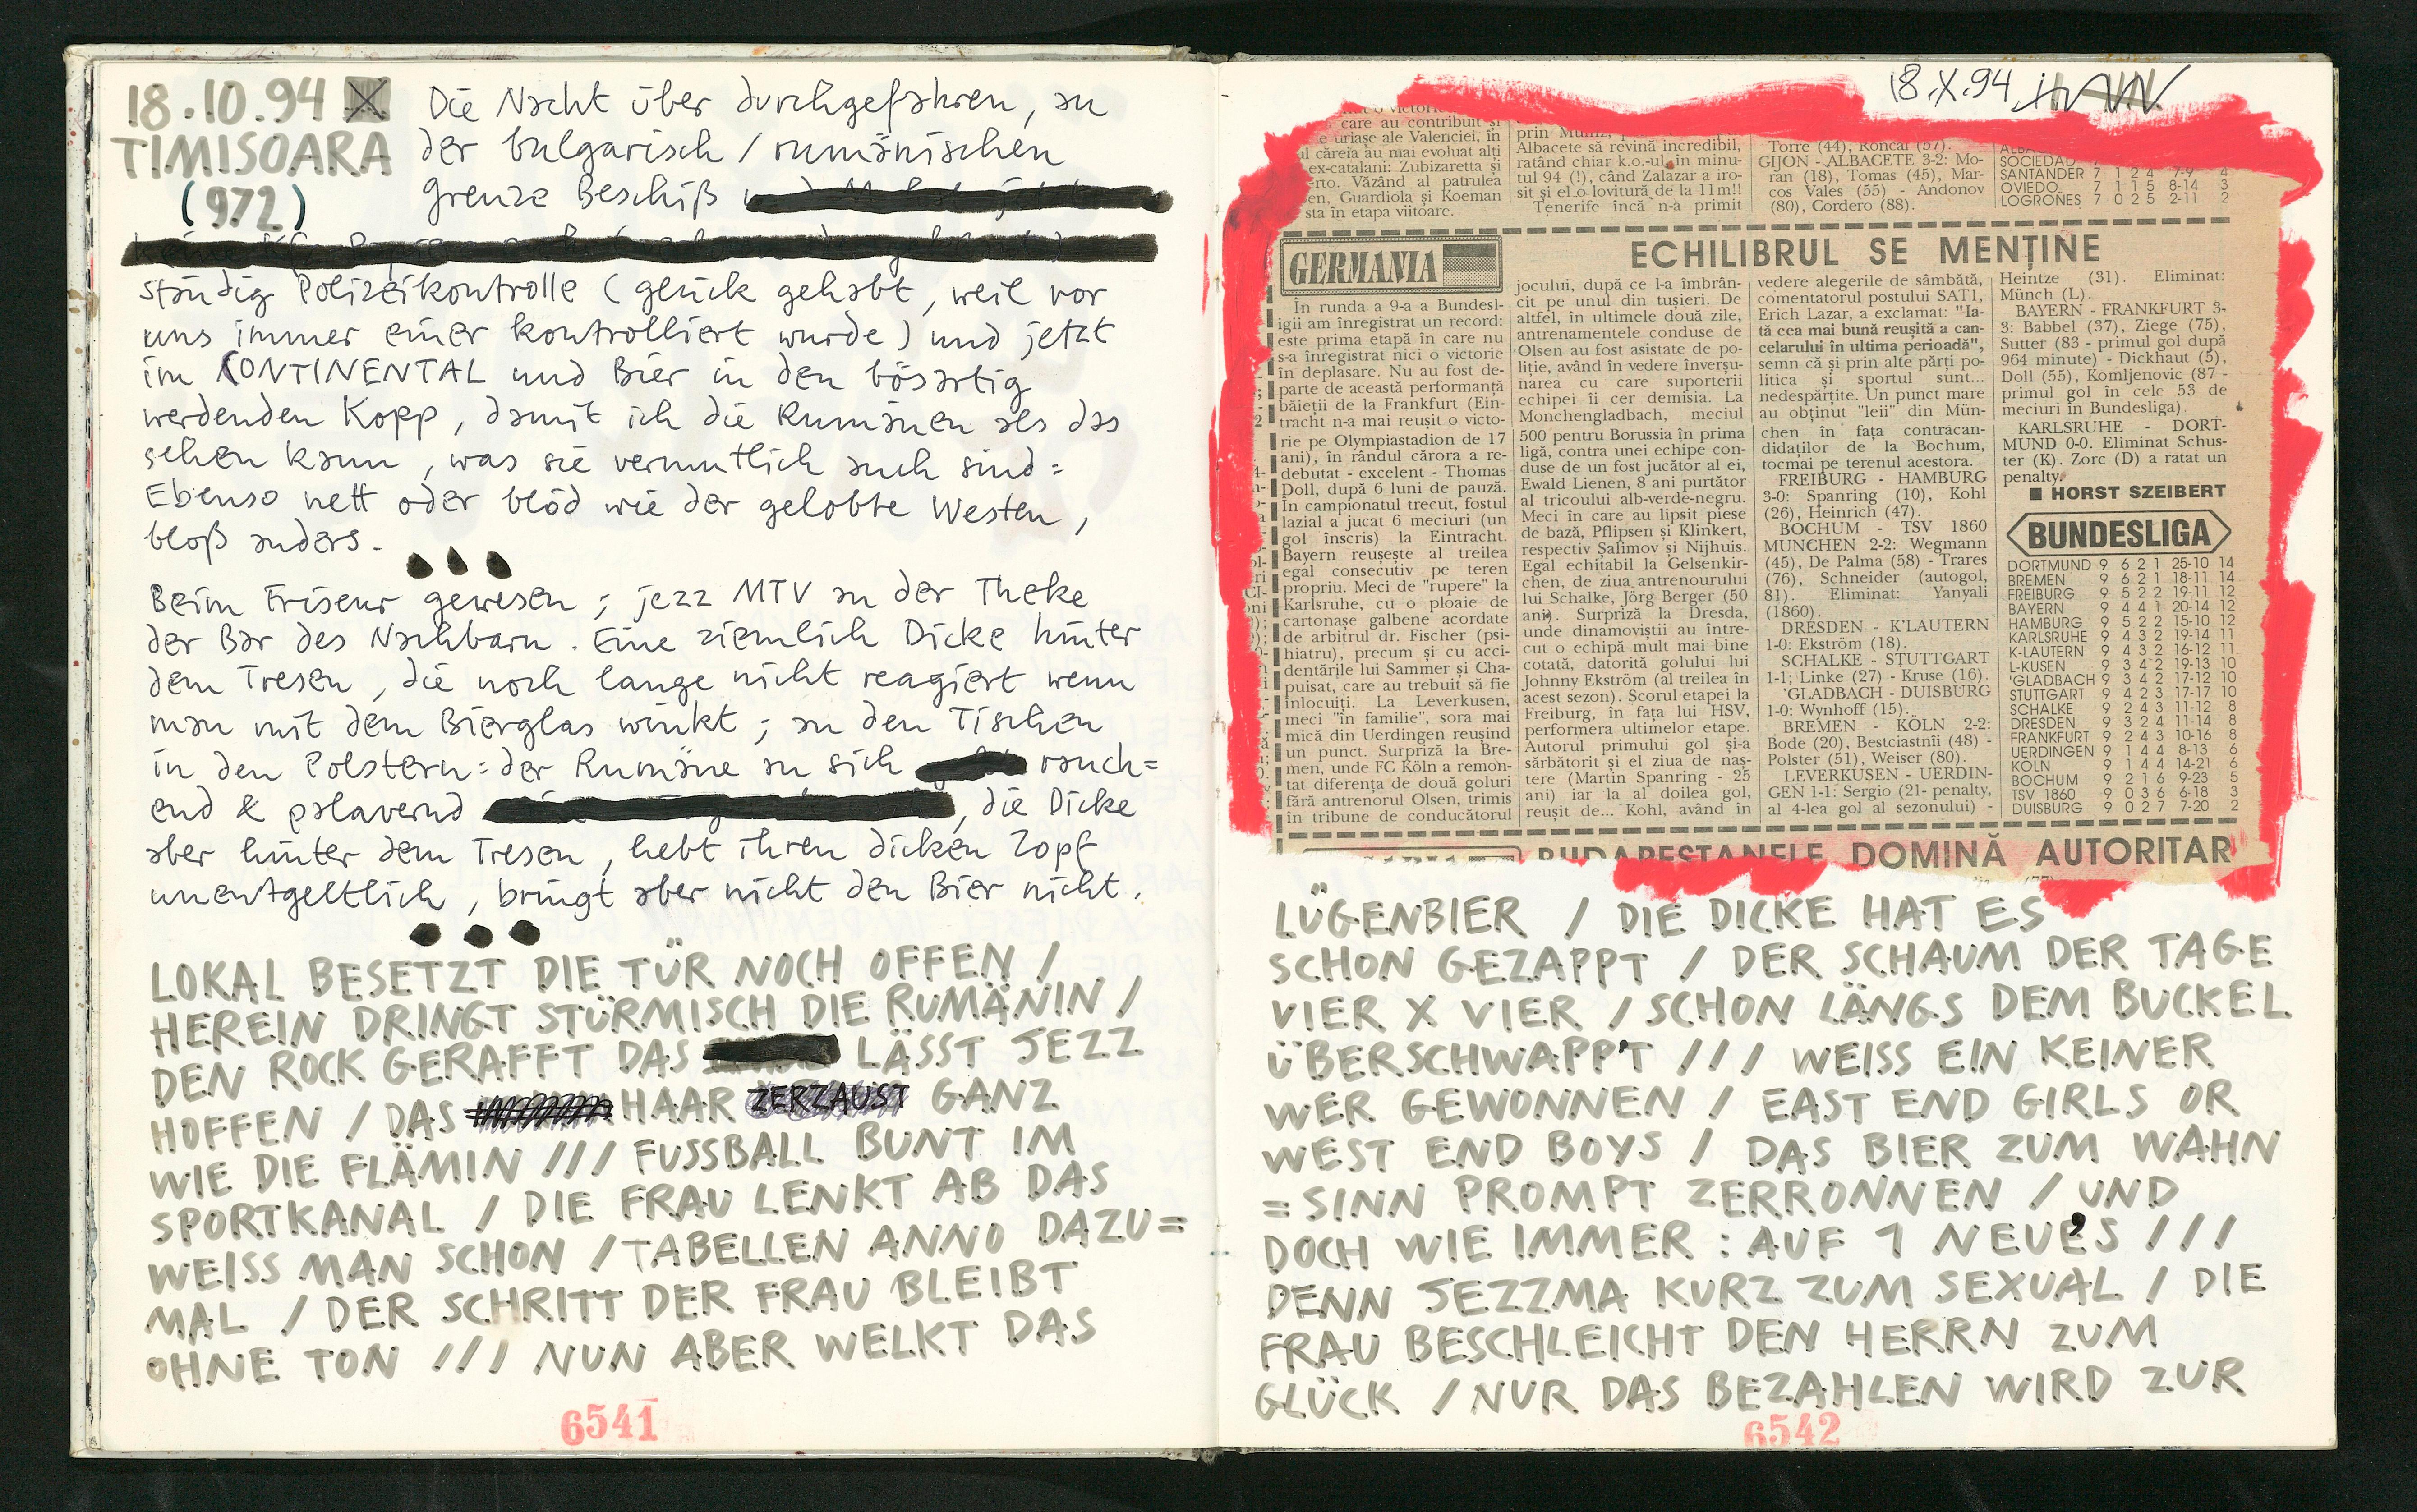 18.10.94
TIMISOARA
(972)
Die Nacht über durchgefahren, an
der bulgarisch/rumänischen
Grenze Beschiß
ständig Polizeikontrolle (Glück gehabt, weil vor
uns immer einer kontrolliert wurde) und jetzt
im CONTINENTAL und Bier in den bösartig
werdenden Kopp, damit ich die Rumänen als das
sehen kann, was sie vermutlich auch sind:
Ebenso nett oder blöd wie der gelobte Westen,
bloß anders.
Beim Friseur gewesen; jezz MTV an der Theke
der Bar des Nachbarn. Eine ziemlich Dicke hinter
dem Tresen, die noch lange nicht reagiert wenn
man mit dem Bierglas winkt; an den Tischen
in den Polstern: der Rumäne an sich rauch=
end & palavernd , die Dicke
aber hinter dem Tresen, hebt ihren dicken Zopf
unentgeltlich, bringt aber nicht den Bier nicht.
LOKAL BESETZT DIE TÜR NOCH OFFEN /
HEREIN DRINGT STÜRMISCH DIE RUMÄNIN /
DEN ROCK GERAFFT DAS LÄSST JEZZ
HOFFEN / DAS HAAR ZERZAUST GANZ
WIE DIE FLÄMIN /// FUSSBALL BUNT IM
SPORTKANAL / DIE FRAU LENKT AB DAS
WEISS MAN SCHON / TABELLEN ANNO DAZU=
MAL / DER SCHRITT DER FRAU BLEIBT
OHNE TON /// NUN ABER WELKT DAS
6541
18.X.94
care au contribuit și
uriașe ale Valenciei, în
căreia au mai evoluat alți
ex-catalani: Zubizaretta și
Văzând al patrulea
Guardiola și Koeman
sta în etapa viitoare.
prin
Albacete să revină incredibil,
ratând chiar k.o.-ul în minu-
tul 94 (!), când Zalazar a iro-
sit și el o lovitură de la 11m!!
Tenerife încă n-a primit
Torre (44), Roncal (57).
GIJON - ALBACETE 3-2: Mo-
ran (18), Tomas (45), Mar-
cos Vales (55) - Andonov
(80), Cordero (88).
SOCIEDAD
SANTANDER 7 1 2 4 7-9 4
OVIEDO 7 1 1 5 8-14 3
LOGROÑES 7 0 2 5 2-11 2
GERMANIA
ECHILIBRUL SE MENȚINE
În runda a 9-a a Bundesl-
igii am înregistrat un record:
este prima etapă în care nu
s-a înregistrat nici o victorie
în deplasare. Nu au fost de-
parte de această performanță
băieții de la Frankfurt (Ein-
tracht n-a mai reușit o victo-
rie pe Olympiastadion de 17
ani), în rândul cărora a re-
debutat - excelent - Thomas
Doll, după 6 luni de pauză.
In campionatul trecut, fostul
lazial a jucat 6 meciuri (un
gol înscris) la Eintracht.
Bayern reușește al treilea
egal consecutiv pe teren
propriu. Meci de "rupere" la
Karlsruhe, cu o ploaie de
cartonașe galbene acordate
de arbitrul dr. Fischer (psi-
hiatru), precum și cu acci-
dentările lui Sammer și Cha-
puisat, care au trebuit să fie
înlocuiți. La Leverkusen,
meci "în familie", sora mai
mică din Uerdingen reușind
un punct. Surpriză la Bre-
men, unde FC Köln a remon-
tat diferența de două goluri
fără antrenorul Olsen, trimis
în tribune de conducătorul
jocului, după ce l-a îmbrân-
cit pe unul din tușieri. De
altfel, în ultimele două zile,
antrenamentele conduse de
Olsen au fost asistate de po-
liție, având în vedere înverșu-
narea cu care suporterii
echipei îi cer demisia. La
Monchengladbach, meciul
500 pentru Borussia în prima
ligă, contra unei echipe con-
duse de un fost jucător al ei,
Ewald Lienen, 8 ani purtător
al tricoului alb-verde-negru.
Meci în care au lipsit piese
de bază, Pflipsen și Klinkert,
respectiv Salimov și Nijhuis.
Egal echitabil la Gelsenkir-
chen, de ziua antrenorului
lui Schalke, Jörg Berger (50
ani). Surpriză la Dresda,
unde dinamoviștii au între-
cut o echipă mult mai bine
cotată, datorită golului lui
Johnny Ekström (al treilea în
acest sezon). Scorul etapei la
Freiburg, în fața lui HSV,
performera ultimelor etape.
Autorul primului gol și-a
sărbătorit și el ziua de naș-
tere (Martin Spanring - 25
ani) iar la al doilea gol,
reușit de... Kohl, având în
vedere alegerile de sâmbătă,
comentatorul postului SAT1,
Erich Lazar, a exclamat: "Ia-
tă cea mai bună reușită a can-
celarului în ultima perioadă",
semn că și prin alte părți po-
litica și sportul sunt...
nedespărțite. Un punct mare
au obținut "leii" din Mün-
chen în fața contracan-
didaților de la Bochum,
tocmai pe terenul acestora.
FREIBURG - HAMBURG
3-0: Spanring (10), Kohl
(26), Heinrich (47).
BOCHUM - TSV 1860
MUNCHEN 2-2: Wegmann
(45), De Palma (58) - Trares
(76), Schneider (autogol,
81). Eliminat: Yanyali
(1860).
DRESDEN - K'LAUTERN
1-0: Ekström (18).
SCHALKE - STUTTGART
1-1; Linke (27) - Kruse (16).
'GLADBACH - DUISBURG
1-0: Wynhoff (15).
BREMEN - KÖLN 2-2:
Bode (20), Bestciastnîi (48) -
Polster (51), Weiser (80).
LEVERKUSEN - UERDIN-
GEN 1-1: Sergio (21- penalty,
al 4-lea gol al sezonului) -
Heintze (31). Eliminat:
Münch (L).
BAYERN - FRANKFURT 3-
3: Babbel (37), Ziege (75),
Sutter (83 - primul gol după
964 minute) - Dickhaut (5),
Doll (55), Komljenovic (87 -
primul gol în cele 53 de
meciuri în Bundesliga).
KARLSRUHE - DORT-
MUND 0-0. Eliminat Schus-
ter (K). Zorc (D) a ratat un
penalty.
■ HORST SZEIBERT
BUNDESLIGA
DORTMUND 9 6 2 1 25-10 14
BREMEN 9 6 2 1 18-11 14
FREIBURG 9 5 2 2 19-11 12
BAYERN 9 4 4 1 20-14 12
HAMBURG 9 5 2 2 15-10 12
KARLSRUHE 9 4 3 2 19-14 11
K-LAUTERN 9 4 3 2 16-12 11
L-KUSEN 9 3 4 2 19-13 10
'GLADBACH 9 3 4 2 17-12 10
STUTTGART 9 4 2 3 17-17 10
SCHALKE 9 2 4 3 11-12 8
DRESDEN 9 3 2 4 11-14 8
FRANKFURT 9 2 4 3 10-16 8
UERDINGEN 9 1 4 4 8-13 6
KÖLN 9 1 4 4 14-21 6
BOCHUM 9 2 1 6 9-23 5
TSV 1860 9 0 3 6 6-18 3
DUISBURG 9 0 2 7 7-20 2
BUDAPESTANELE DOMINĂ AUTORITAR
LÜGENBIER / DIE DICKE HAT ES
SCHON GEZAPPT / DER SCHAUM DER TAGE
VIER X VIER / SCHON LÄNGS DEM BUCKEL
ÜBERSCHWAPP'T /// WEISS EIN KEINER
WER GEWONNEN / EAST END GIRLS OR
WEST END BOYS / DAS BIER ZUM WAHN
=SINN PROMPT ZERRONNEN / UND
DOCH WIE IMMER : AUF 1 NEUE'S ///
DENN JEZZMA KURZ ZUM SEXUAL / DIE
FRAU BESCHLEICHT DEN HERRN ZUM
GLÜCK / NUR DAS BEZAHLEN WIRD ZUR
6542